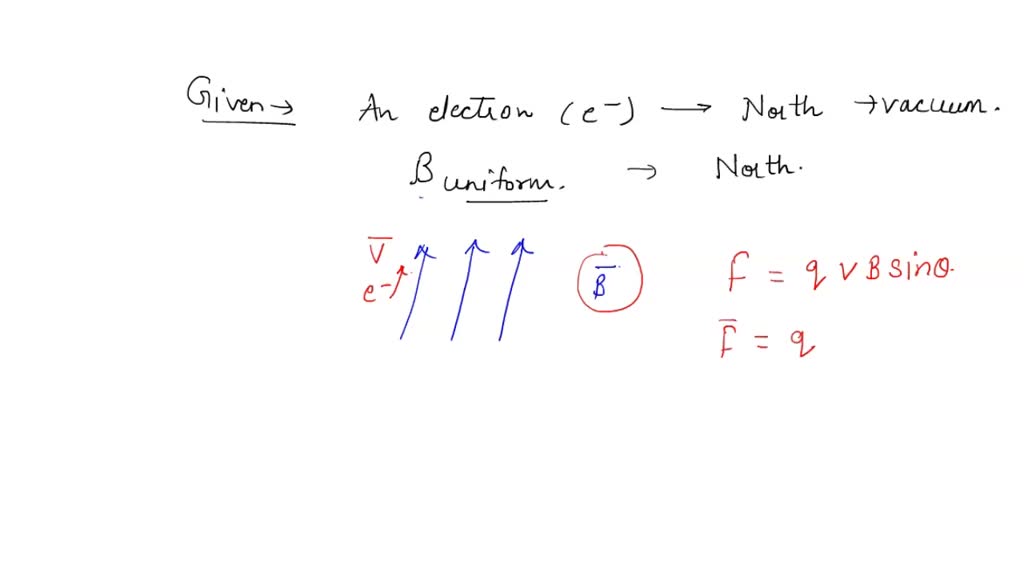 Given → An election (e⁻) → North → vacuum.
B uniform. → North.
V
e⁻
B
F = q V B sinθ.
F = q